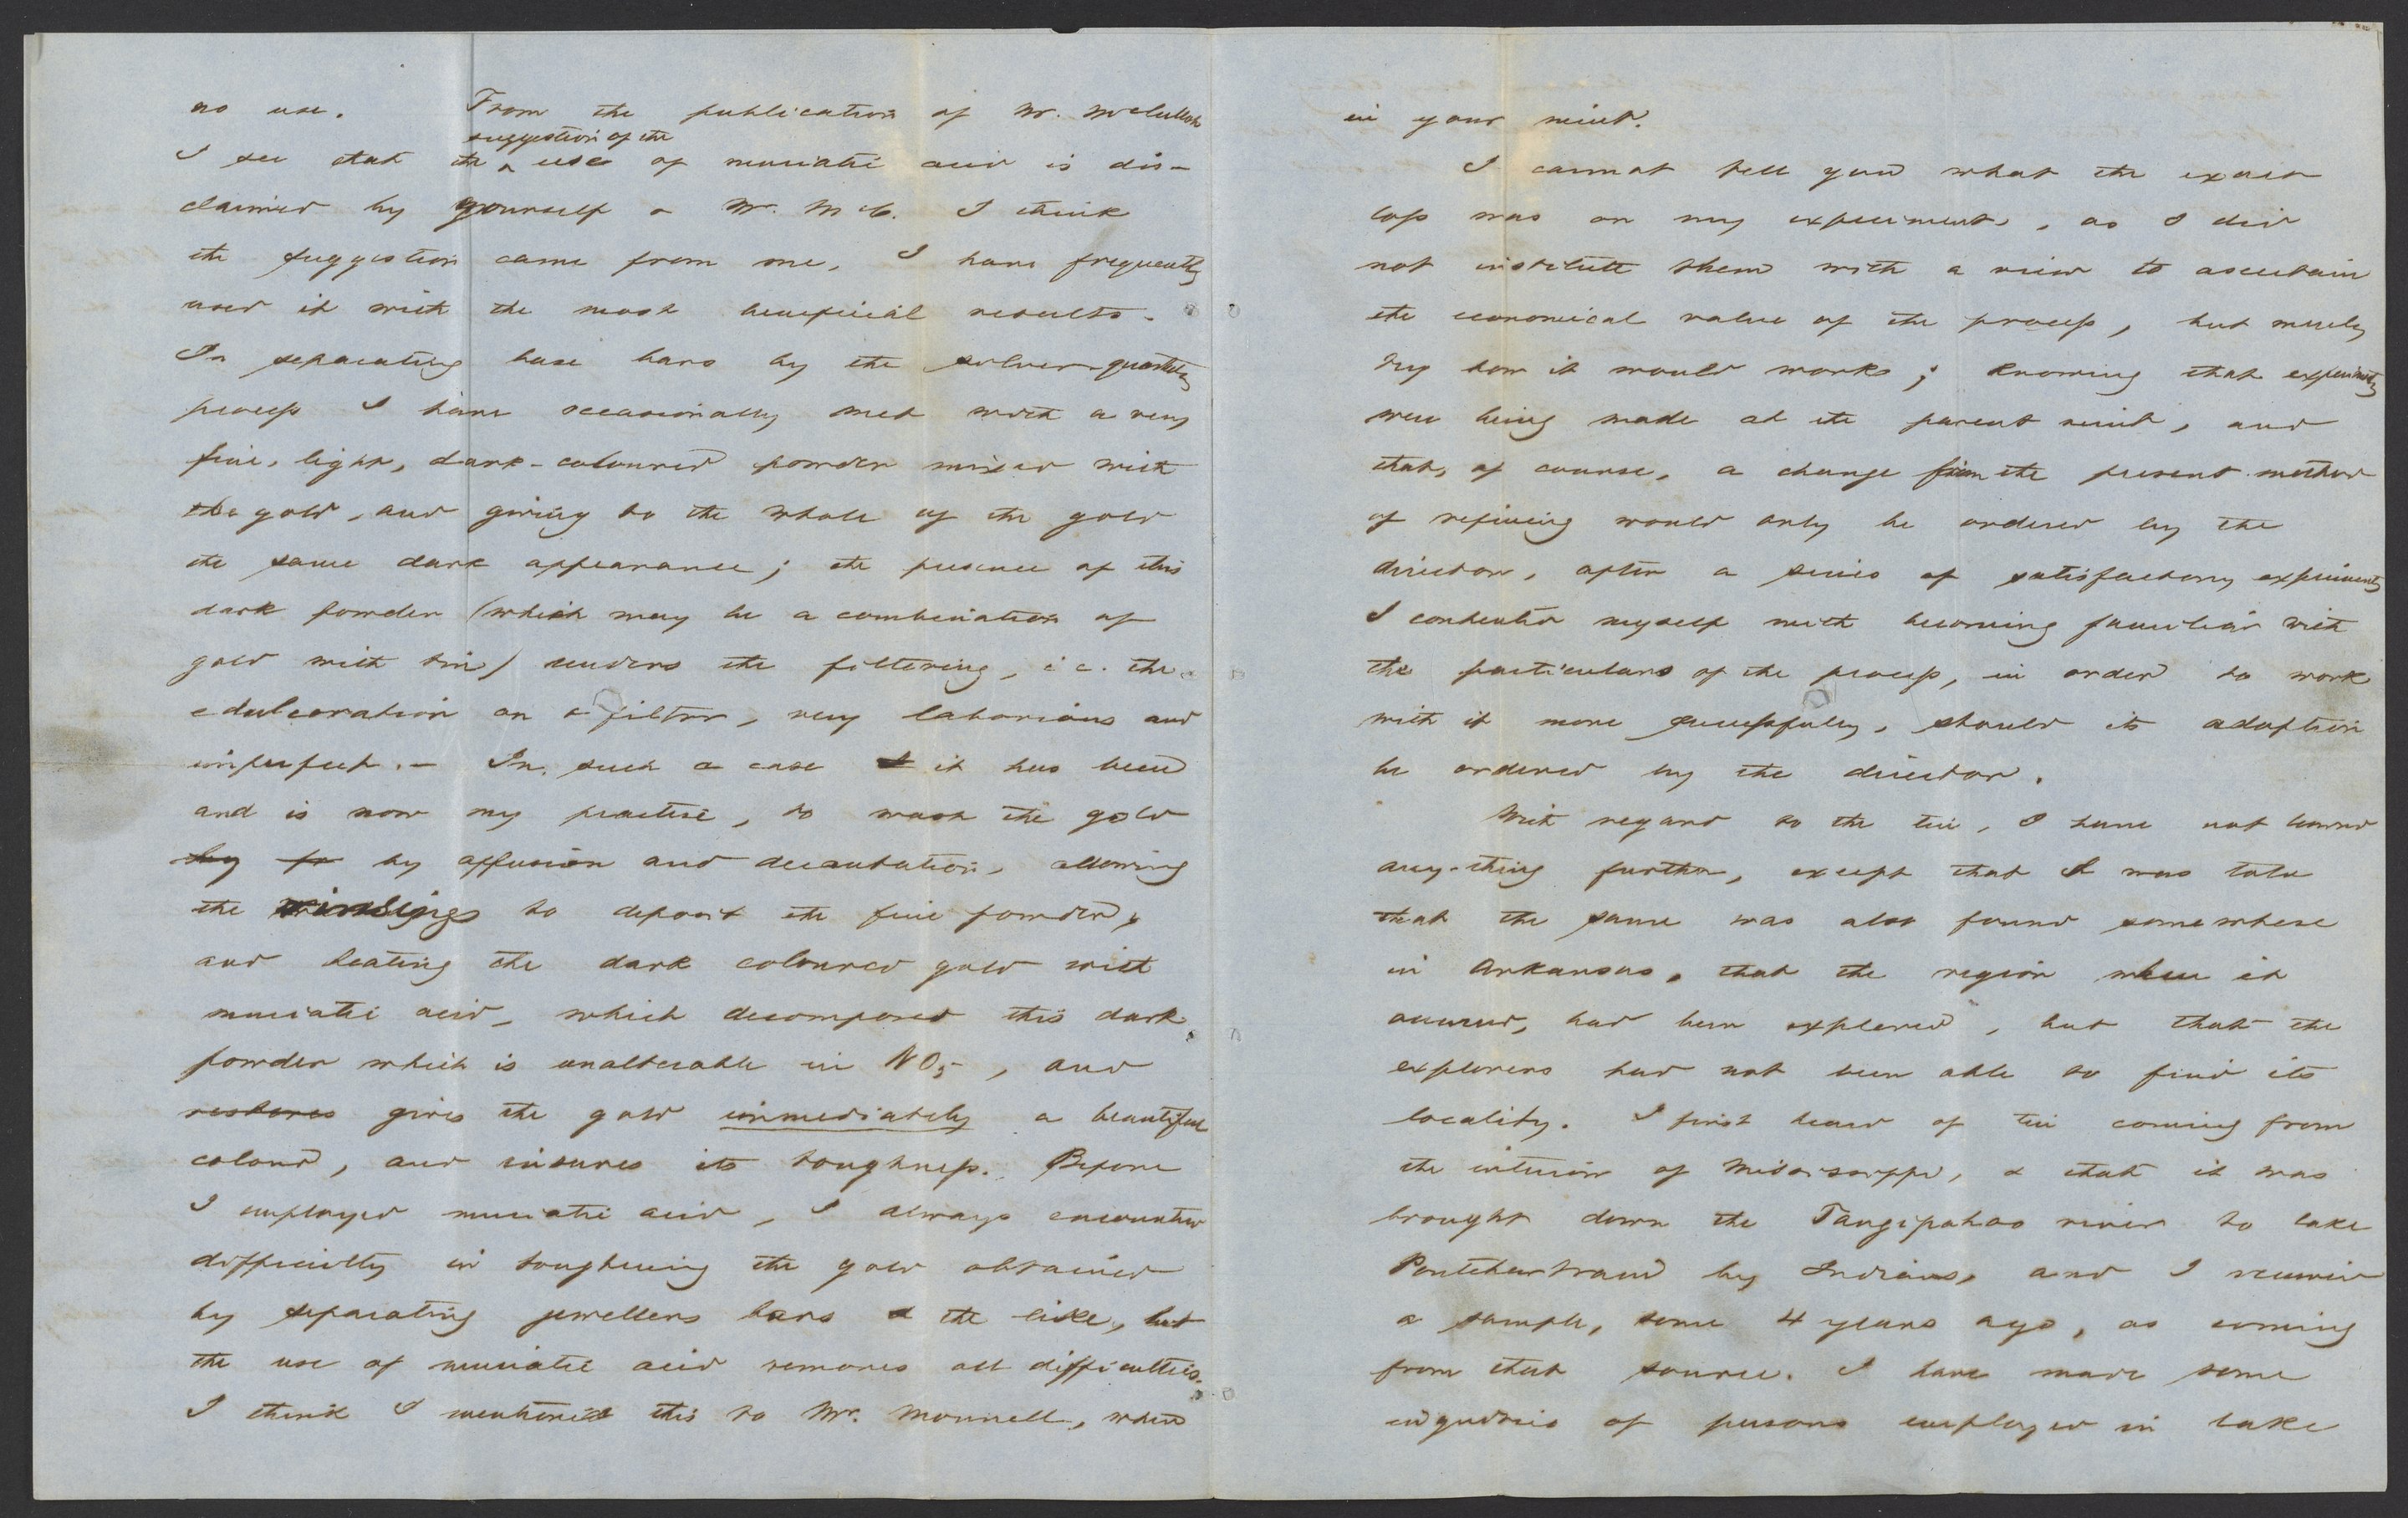 no use. From the publication of Mr. McCulloh
suggestion of the
I see that the ^ use of muriatic acid is dis-
claimed by yourself & Mr. McC. I think
the suggestion came from me, I have frequently
used it with the most beneficial results.
In separating base bars by the silver-quartation
process I have occasionally met with a very
fine, light, dark-coloured powder mixed with
the gold, and giving to the whole of the gold
the same dark appearance; the presence of this
dark powder (which may be a combination of
gold with tin) renders the filtering, i.e. the
edulcoration on a filter, very laborious and
imperfect. — In such a case it has been
and is now my practise, to wash the gold
by by affusion and decantation, allowing
the rinsings to deposit the fine powder,
and heating the dark coloured gold with
muriatic acid, which decomposes this dark
powder which is unalterable in NO5, and
restores gives the gold immediately a beautiful
colour, and insures its toughness. Before
I employed muriatic acid, I always encountered
difficulty in toughening the gold obtained
by separating jewellers bars & the like, but
the use of muriatic acid removes all difficulties.
I think I mentioned this to Mr. Monnell, when
in your mint.
I cannot tell you what the exact
loss was on my experiments, as I did
not institute them with a view to ascertain
the economical value of the process, but merely
try how it would work; knowing that experiments
were being made at the parent mint, and
that, of course, a change from the present method
of refining would only be ordered by the
director, after a series of satisfactory experiments
I contented myself with becoming familiar with
the particulars of the process, in order to work
with it more successfully, should its adoption
be ordered by the director.
With regard to the tin, I have not learned
any-thing further, except that I was told
that the same was also found somewhere
in Arkansas, that the region where it
occurred, had been explored, but that the
explorers had not been able to find its
locality. I first heard of tin coming from
the interior of Mississippi, & that it was
brought down the Tangipahao river to lake
Pontchartrain by Indians, and I received
a sample, some 4 years ago, as coming
from that source. I have made some
inquiries of persons employed in lake